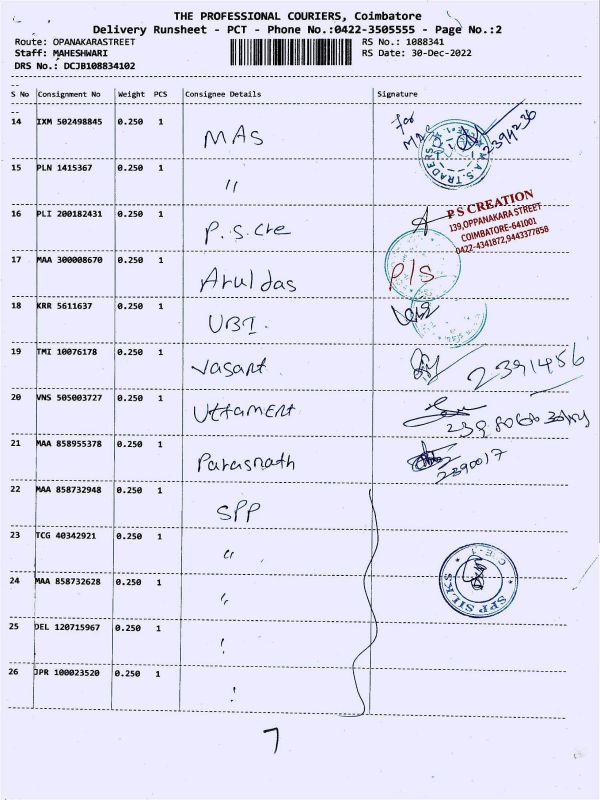 THE PROFESSIONAL COURIERS, Coimbatore
Delivery Runsheet - PCT - Phone No.:0422-3505555 - Page No.:2
Route: OPANAKARASTREET RS No.: 1088341
Staff: MAHESHWARI RS Date: 30-Dec-2022
DRS No.: DCJB108834102
S No Consignment No Weight PCS Consignee Details Signature
14 IXM 502498845 0.250 1 MAS for MAS 2394236
M.A.S.TRADERS
15 PLN 1415367 0.250 1 "
16 PLI 200182431 0.250 1 P.S.Cre
P S CREATION
139,OPPANAKARA STREET
COIMBATORE-641001
0422-4341872,9443377858
17 MAA 300008670 0.250 1 Aruldas P/S
18 KRR 5611637 0.250 1 UBI.
19 TMI 10076178 0.250 1 Vasant 2391456
20 VNS 505003727 0.250 1 Uttament
21 MAA 858955378 0.250 1 Parasnath 2390017
22 MAA 858732948 0.250 1 SPP
23 TCG 40342921 0.250 1 "
SPP SILKS CBE-1
24 MAA 858732628 0.250 1 "
25 DEL 120715967 0.250 1 "
26 JPR 100023520 0.250 1 "
7